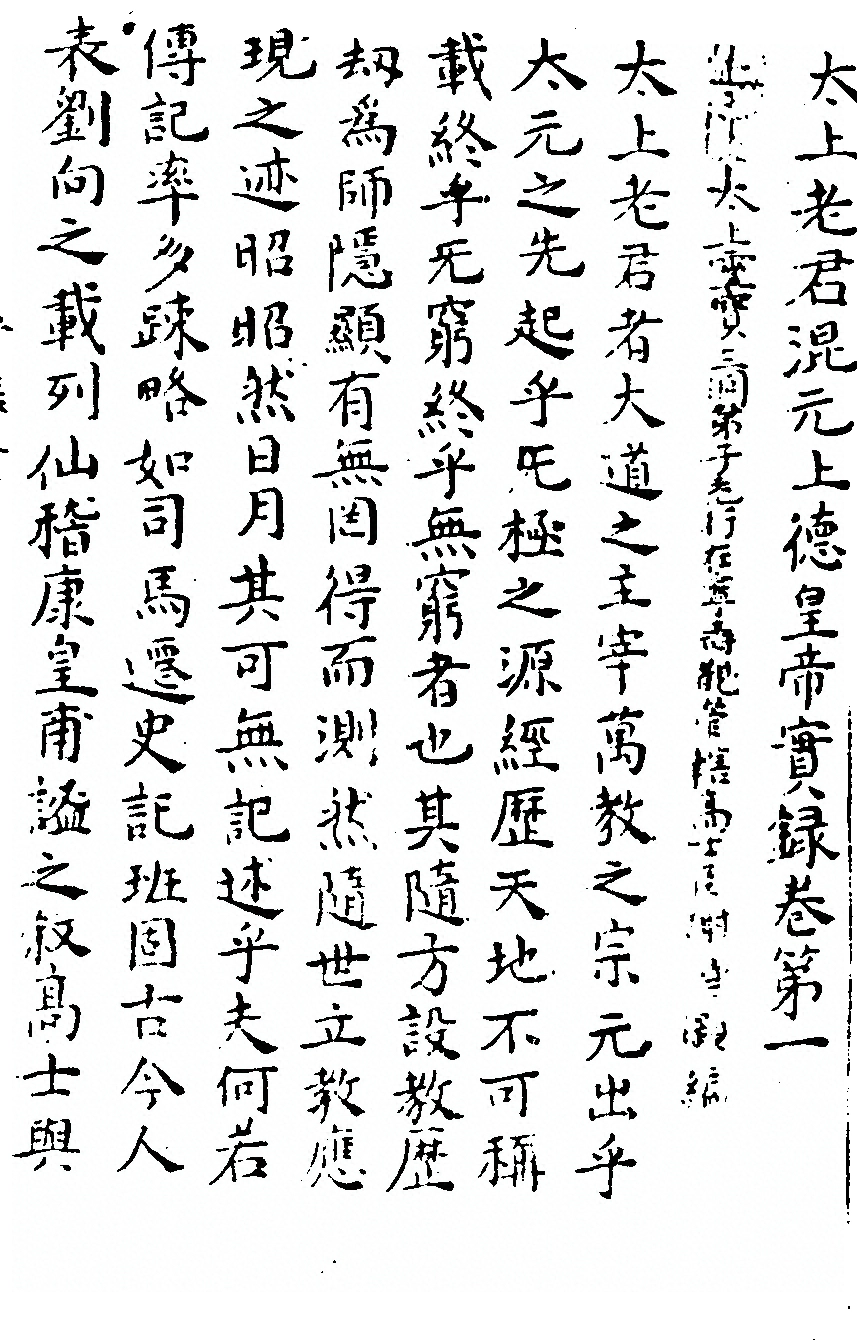 太上老君混元上德皇帝實録卷第一
太上靈寳三洞弟子
太上老君者大道之主宰萬教之宗元出乎
太元之先起乎旡極之源經歷天地不可稱
載終乎旡窮終乎無窮者也其隨方設教歷
劫爲師隱顯有無罔得而測然隨世立教應
現之迹昭昭然日月其可無記述乎夫何若
傳記率多踈略如司馬遷史記班固古今人
表劉向之載列仙嵇康皇甫謐之叙髙士與